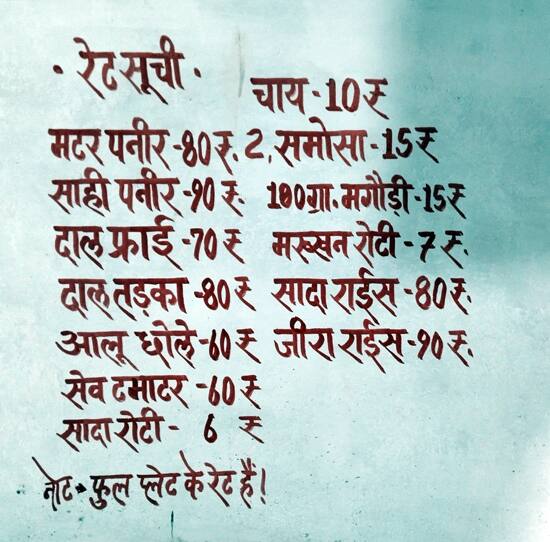 · रेट सूची ·
चाय - 10 रु
मटर पनीर - 80 रु. 2, समोसा - 15 रु
साही पनीर - 90 रु. 100 ग्रा. मगौड़ी - 15 रु
दाल फ्राई - 70 रु मख्खन रोटी - 7 रु.
दाल तड़का - 80 रु सादा राईस - 80 रु.
आलू छोले - 60 रु जीरा राईस - 90 रु.
सेव टमाटर - 60 रु
सादा रोटी - 6 रु
नोट - फुल प्लेट के रेट हैं!